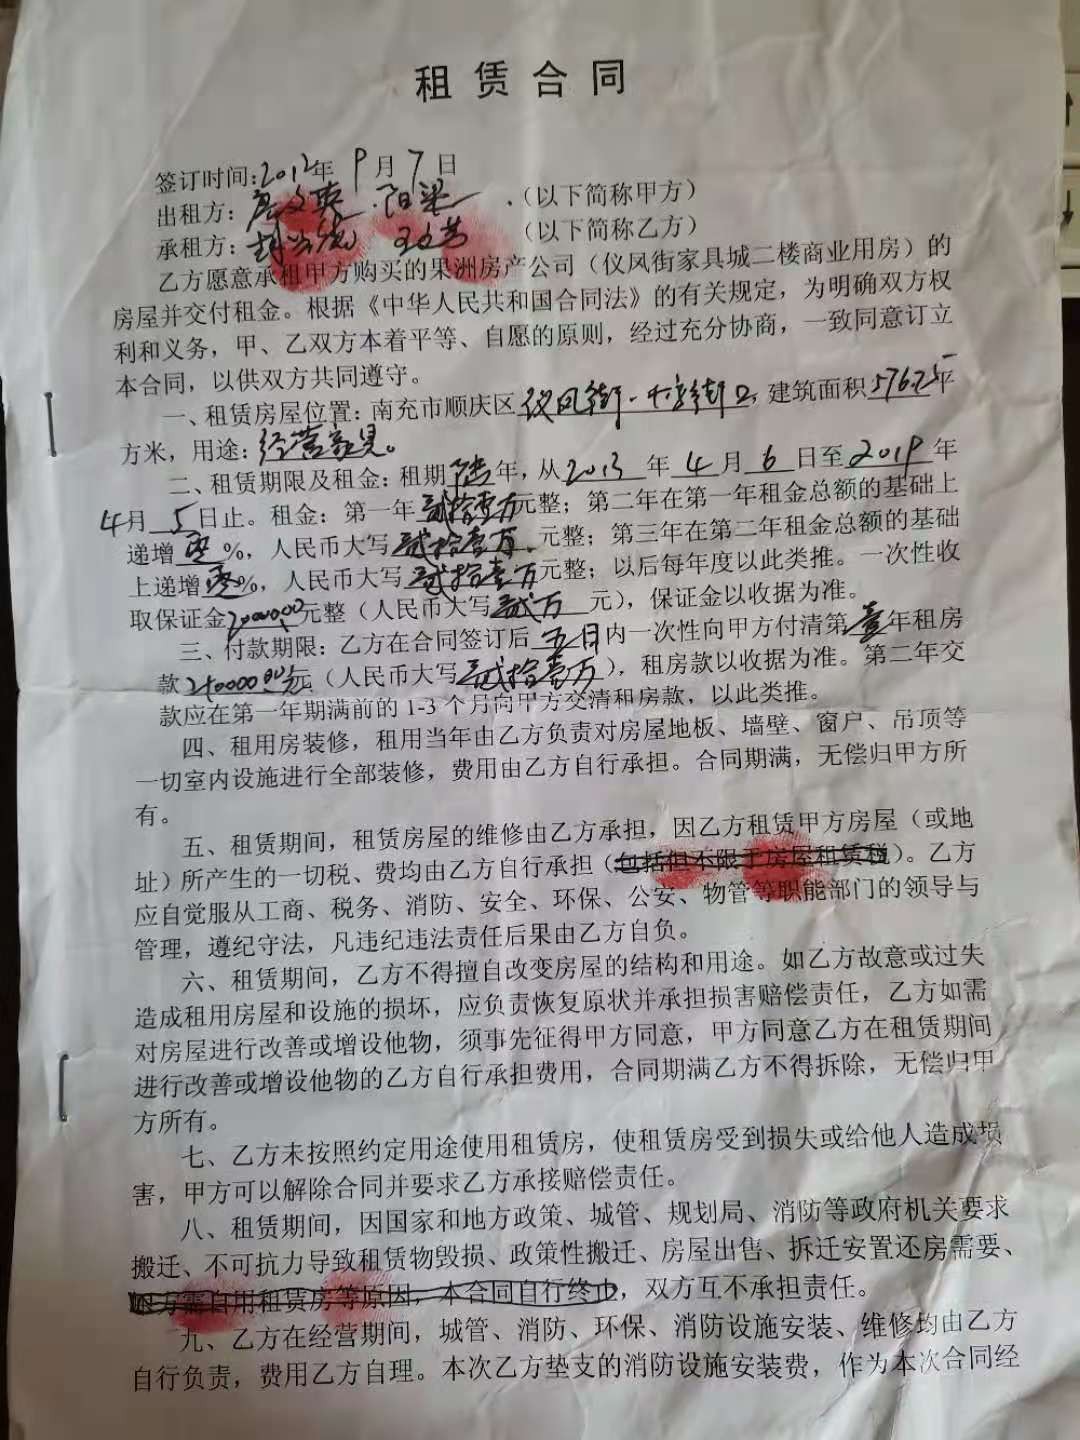 租赁合同
签订时间：2012年 9月 7日
出租方： （以下简称甲方）
承租方： （以下简称乙方）
乙方愿意承租甲方购买的果洲房产公司（仪凤街家具城二楼商业用房）的
房屋并交付租金。根据《中华人民共和国合同法》的有关规定，为明确双方权
利和义务，甲、乙双方本着平等、自愿的原则，经过充分协商，一致同意订立
本合同，以供双方共同遵守。
一、租赁房屋位置：南充市顺庆区仪凤街·十字街口，建筑面积576.25平
方米，用途：经营家具。
二、租赁期限及租金：租期陆年，从2013年4月6日至2019年
4月5日止。租金：第一年贰拾壹万元整；第二年在第一年租金总额的基础上
递增零%，人民币大写贰拾壹万元整；第三年在第二年租金总额的基础
上递增零%，人民币大写贰拾壹万元整；以后每年度以此类推。一次性收
取保证金20000.00元整（人民币大写贰万元），保证金以收据为准。
三、付款期限：乙方在合同签订后五日内一次性向甲方付清第壹年租房
款210000.00元（人民币大写贰拾壹万），租房款以收据为准。第二年交
款应在第一年期满前的1-3个月向甲方交清和房款，以此类推。
四、租用房装修，租用当年由乙方负责对房屋地板、墙壁、窗户、吊顶等
一切室内设施进行全部装修，费用由乙方自行承担。合同期满，无偿归甲方所
有。
五、租赁期间，租赁房屋的维修由乙方承担，因乙方租赁甲方房屋（或地
址）所产生的一切税、费均由乙方自行承担（包括但不限于房屋租赁税）。乙方
应自觉服从工商、税务、消防、安全、环保、公安、物管等职能部门的领导与
管理，遵纪守法，凡违纪违法责任后果由乙方自负。
六、租赁期间，乙方不得擅自改变房屋的结构和用途。如乙方故意或过失
造成租用房屋和设施的损坏，应负责恢复原状并承担损害赔偿责任，乙方如需
对房屋进行改善或增设他物，须事先征得甲方同意，甲方同意乙方在租赁期间
进行改善或增设他物的乙方自行承担费用，合同期满乙方不得拆除，无偿归甲
方所有。
七、乙方未按照约定用途使用租赁房，使租赁房受到损失或给他人造成损
害，甲方可以解除合同并要求乙方承接赔偿责任。
八、租赁期间，因国家和地方政策、城管、规划局、消防等政府机关要求
搬迁、不可抗力导致租赁物毁损、政策性搬迁、房屋出售、拆迁安置还房需要、
方需自用租赁房等原因，本合同自行终止，双方互不承担责任。
九、乙方在经营期间，城管、消防、环保、消防设施安装、维修均由乙方
自行负责，费用乙方自理。本次乙方垫支的消防设施安装费，作为本次合同经